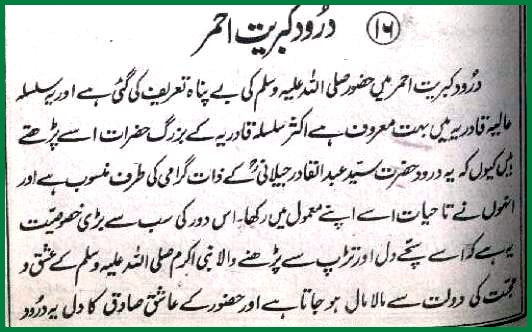 ۱۶ درُود کبریت احمر
درُود کبریت احمر میں حضور صلی اللہ علیہ وسلم کی بے پناہ تعریف کی گئی ہے اور یہ سلسلہ
عالیہ قادریہ میں بہت معروف ہے اکثر سلسلہ قادریہ کے بزرگ حضرات اسے پڑھتے
ہیں کیوں کہ یہ درود حضرت سیّد عبدالقادر جیلانیؒ کے ذات گرامی کی طرف منسوب ہے اور
انہوں نے تا حیات اسے اپنے معمول میں رکھا۔ اس دور کی سب سے بڑی خصوصیّت
یہ ہے کہ اسے سچّے دل اور تڑپ سے پڑھنے والا نبی اکرم صلی اللہ علیہ وسلم کے عشق و
محبّت کی دولت سے مالا مال ہو جاتا ہے اور حضور کے عاشق صادق کا دل یہ درُود